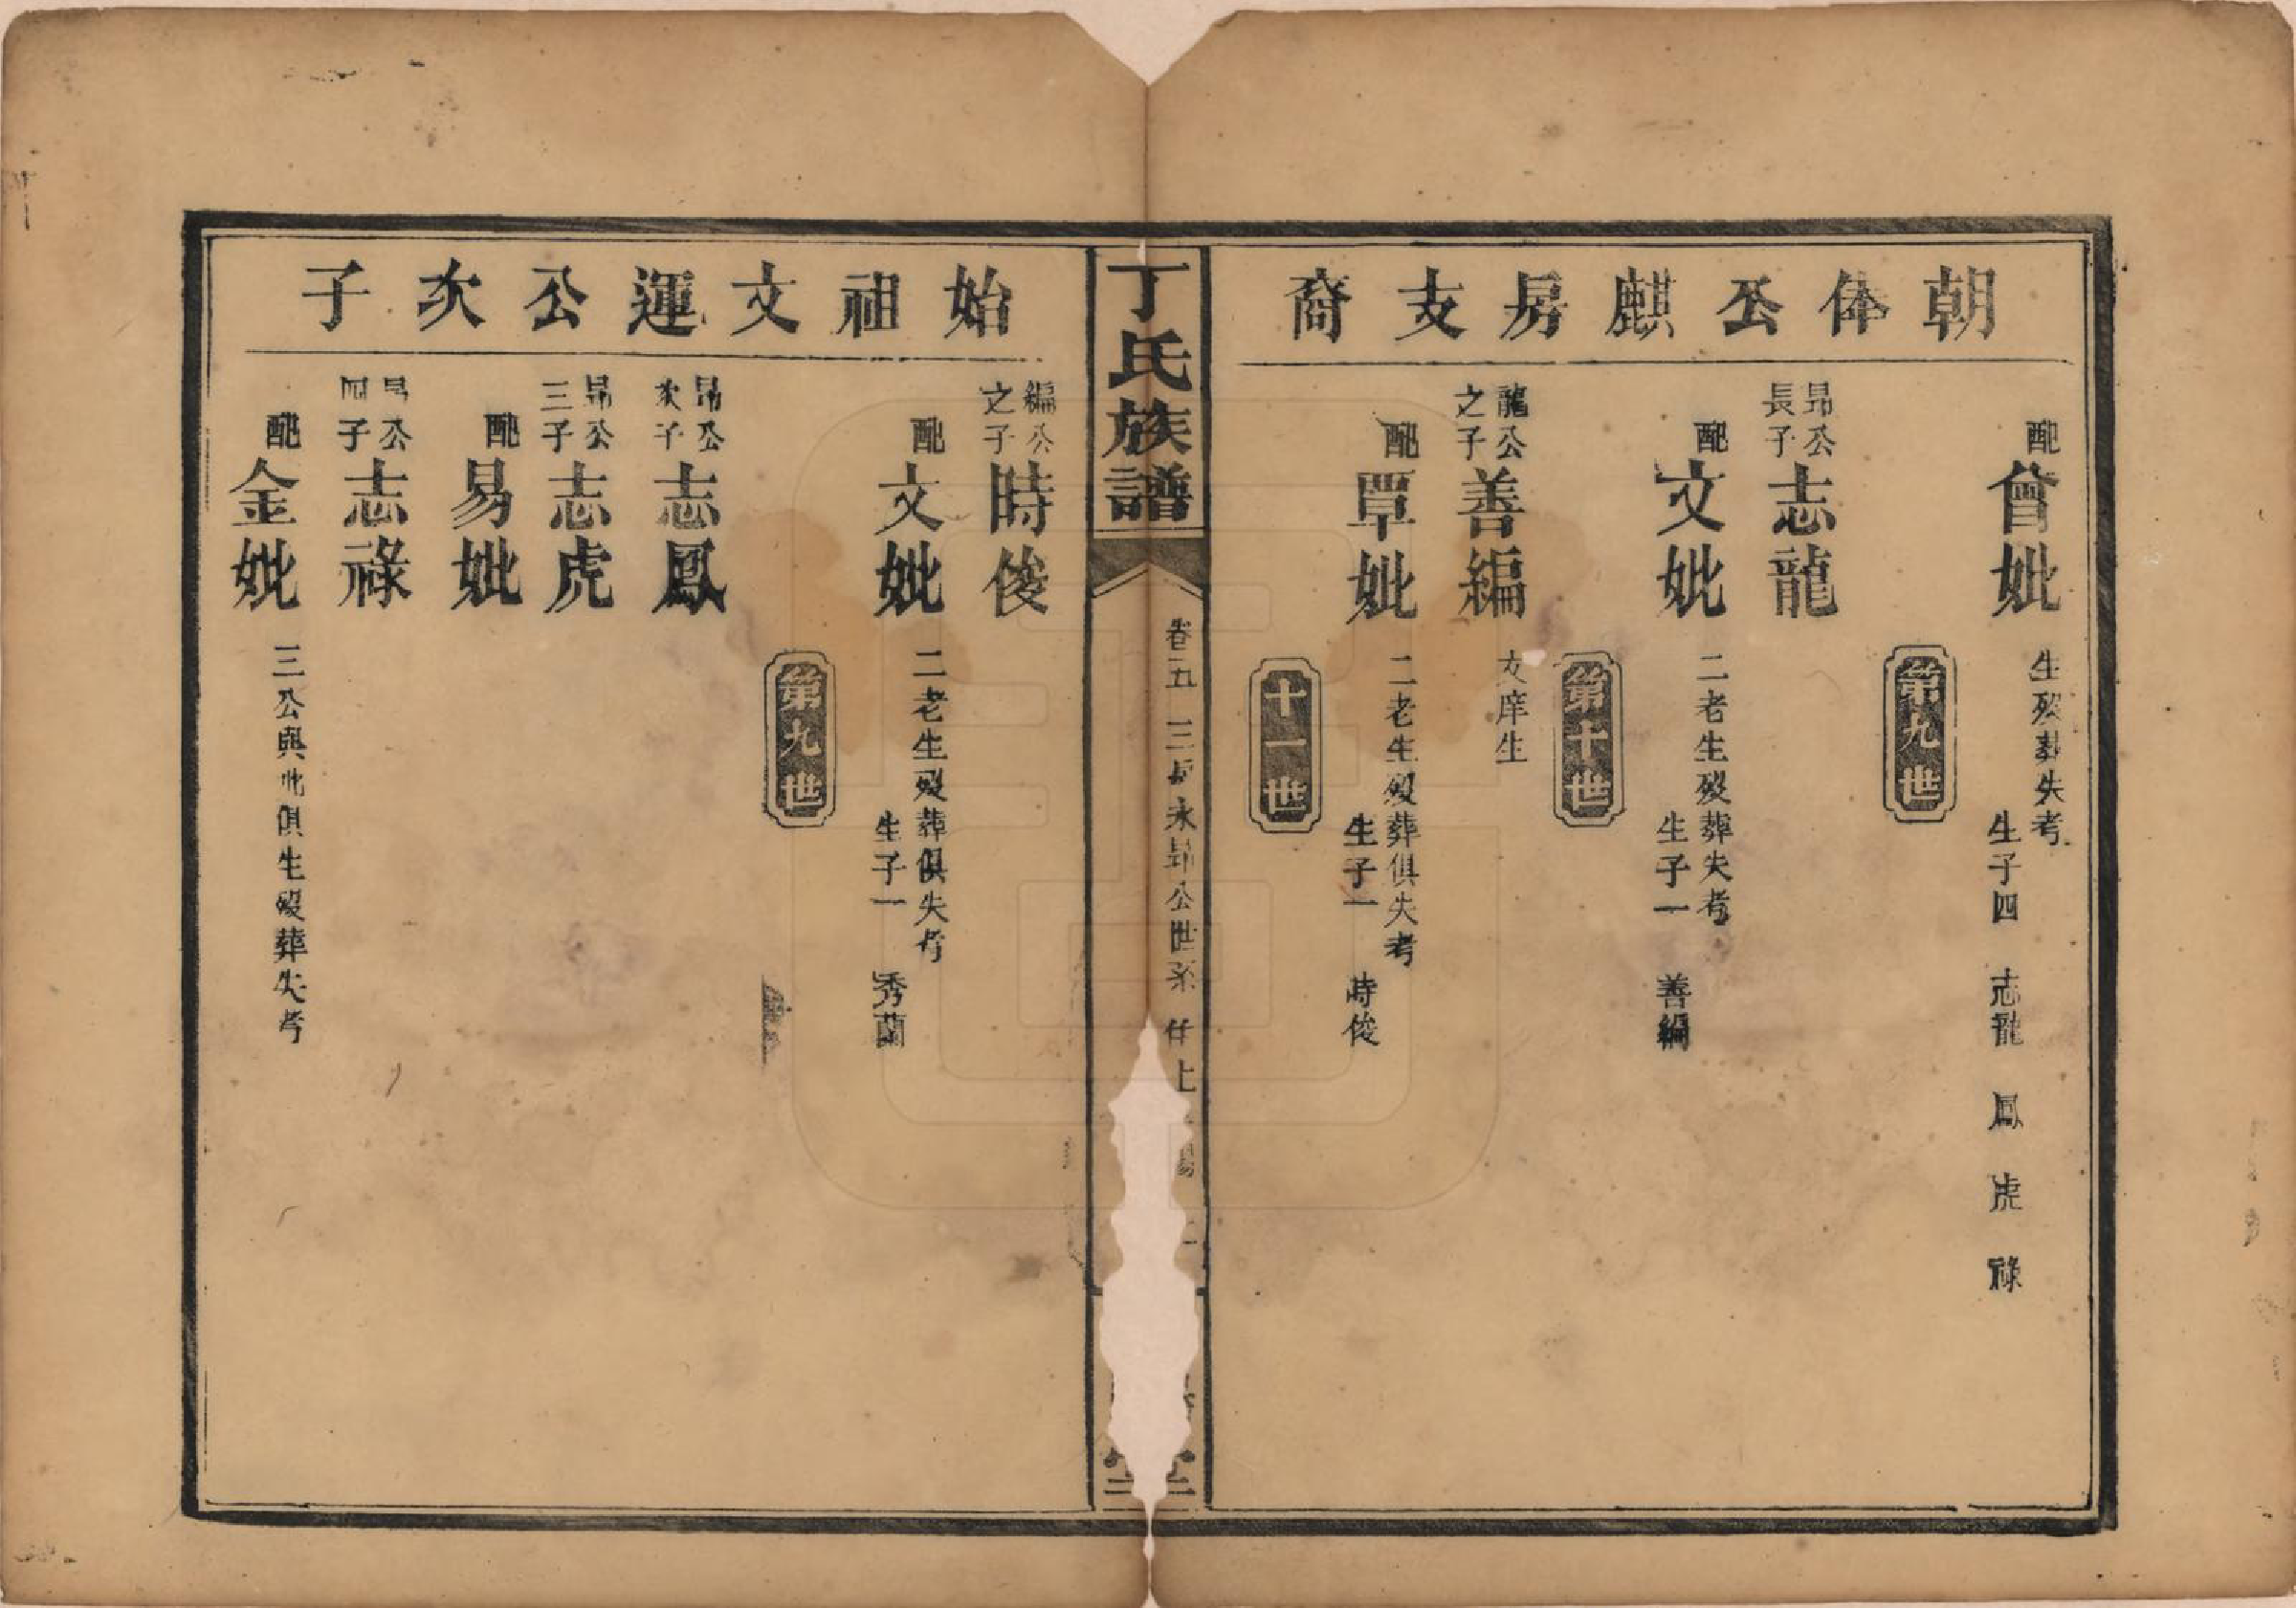 朝体公麒房支裔
配曾妣
生殁葬失考
生子四 志龍 鳳 虎 祿
第九世
昂公長子志龍
配文妣
二老生殁葬失考
生子一 善編
第十世
龍公之子善編
文庠生
配覃妣
二老生殁葬俱失考
生子一 時俊
十一世
丁氏族譜
卷五 三房永昂公世系 仟上
始祖文運公次子
編公之子時俊
配文妣
二老生殁葬俱失考
生子一 秀蘭
第九世
昂公次子志鳳
昂公三子志虎
配易妣
昂公四子志祿
配金妣
三公與妣俱生殁葬失考